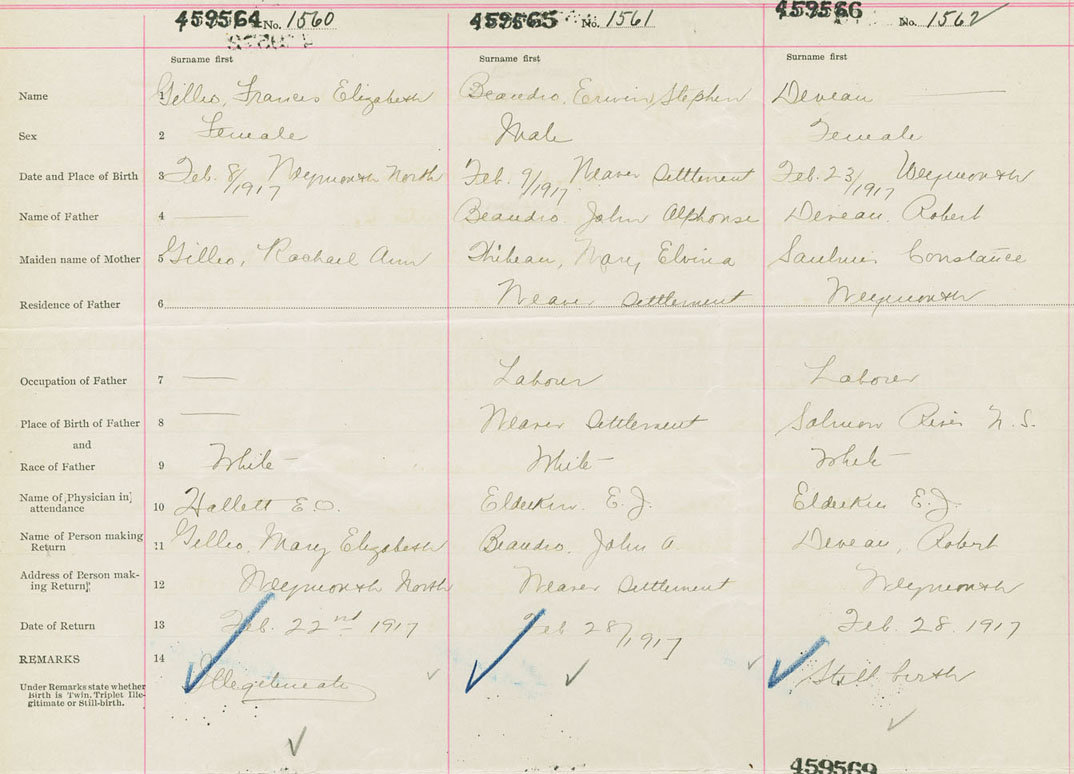 459564 No. 1560 459565 No. 1561 459566 No. 1562
Surname first Surname first Surname first
Name 1 Gillis, Frances Elizabeth Beaudro, Erwin Stephen Deveau
Sex 2 Female Male Female
Date and Place of Birth 3 Feb. 8/1917 Weymouth North Feb. 9/1917 Weaver Settlement Feb. 23/1917 Weymouth
Name of Father 4 Beaudro. John Alphonse Deveau, Robert
Maiden name of Mother 5 Gillis, Rachael Ann Thibeau, Mary Elvina Saulnier Constance
Residence of Father 6 Weaver Settlement Weymouth
Occupation of Father 7 Laborer Laborer
Place of Birth of Father 8 Weaver Settlement Salmon River N.S.
and
Race of Father 9 White White White
Name of Physician in
attendance 10 Hallett E.O. Elderkin. E.J. Elderkin E.J.
Name of Person making
Return 11 Gillis, Mary Elizabeth Beaudro. John A Deveau, Robert
Address of Person mak-
ing Return 12 Weymouth North Weaver Settlement Weymouth
Date of Return 13 Feb. 22nd 1917 Feb 28/1917 Feb. 28. 1917
REMARKS 14 Illegitimate Still birth
Under Remarks state whether
Birth is Twin, Triplet Ille-
gitimate or Still-birth.
459569